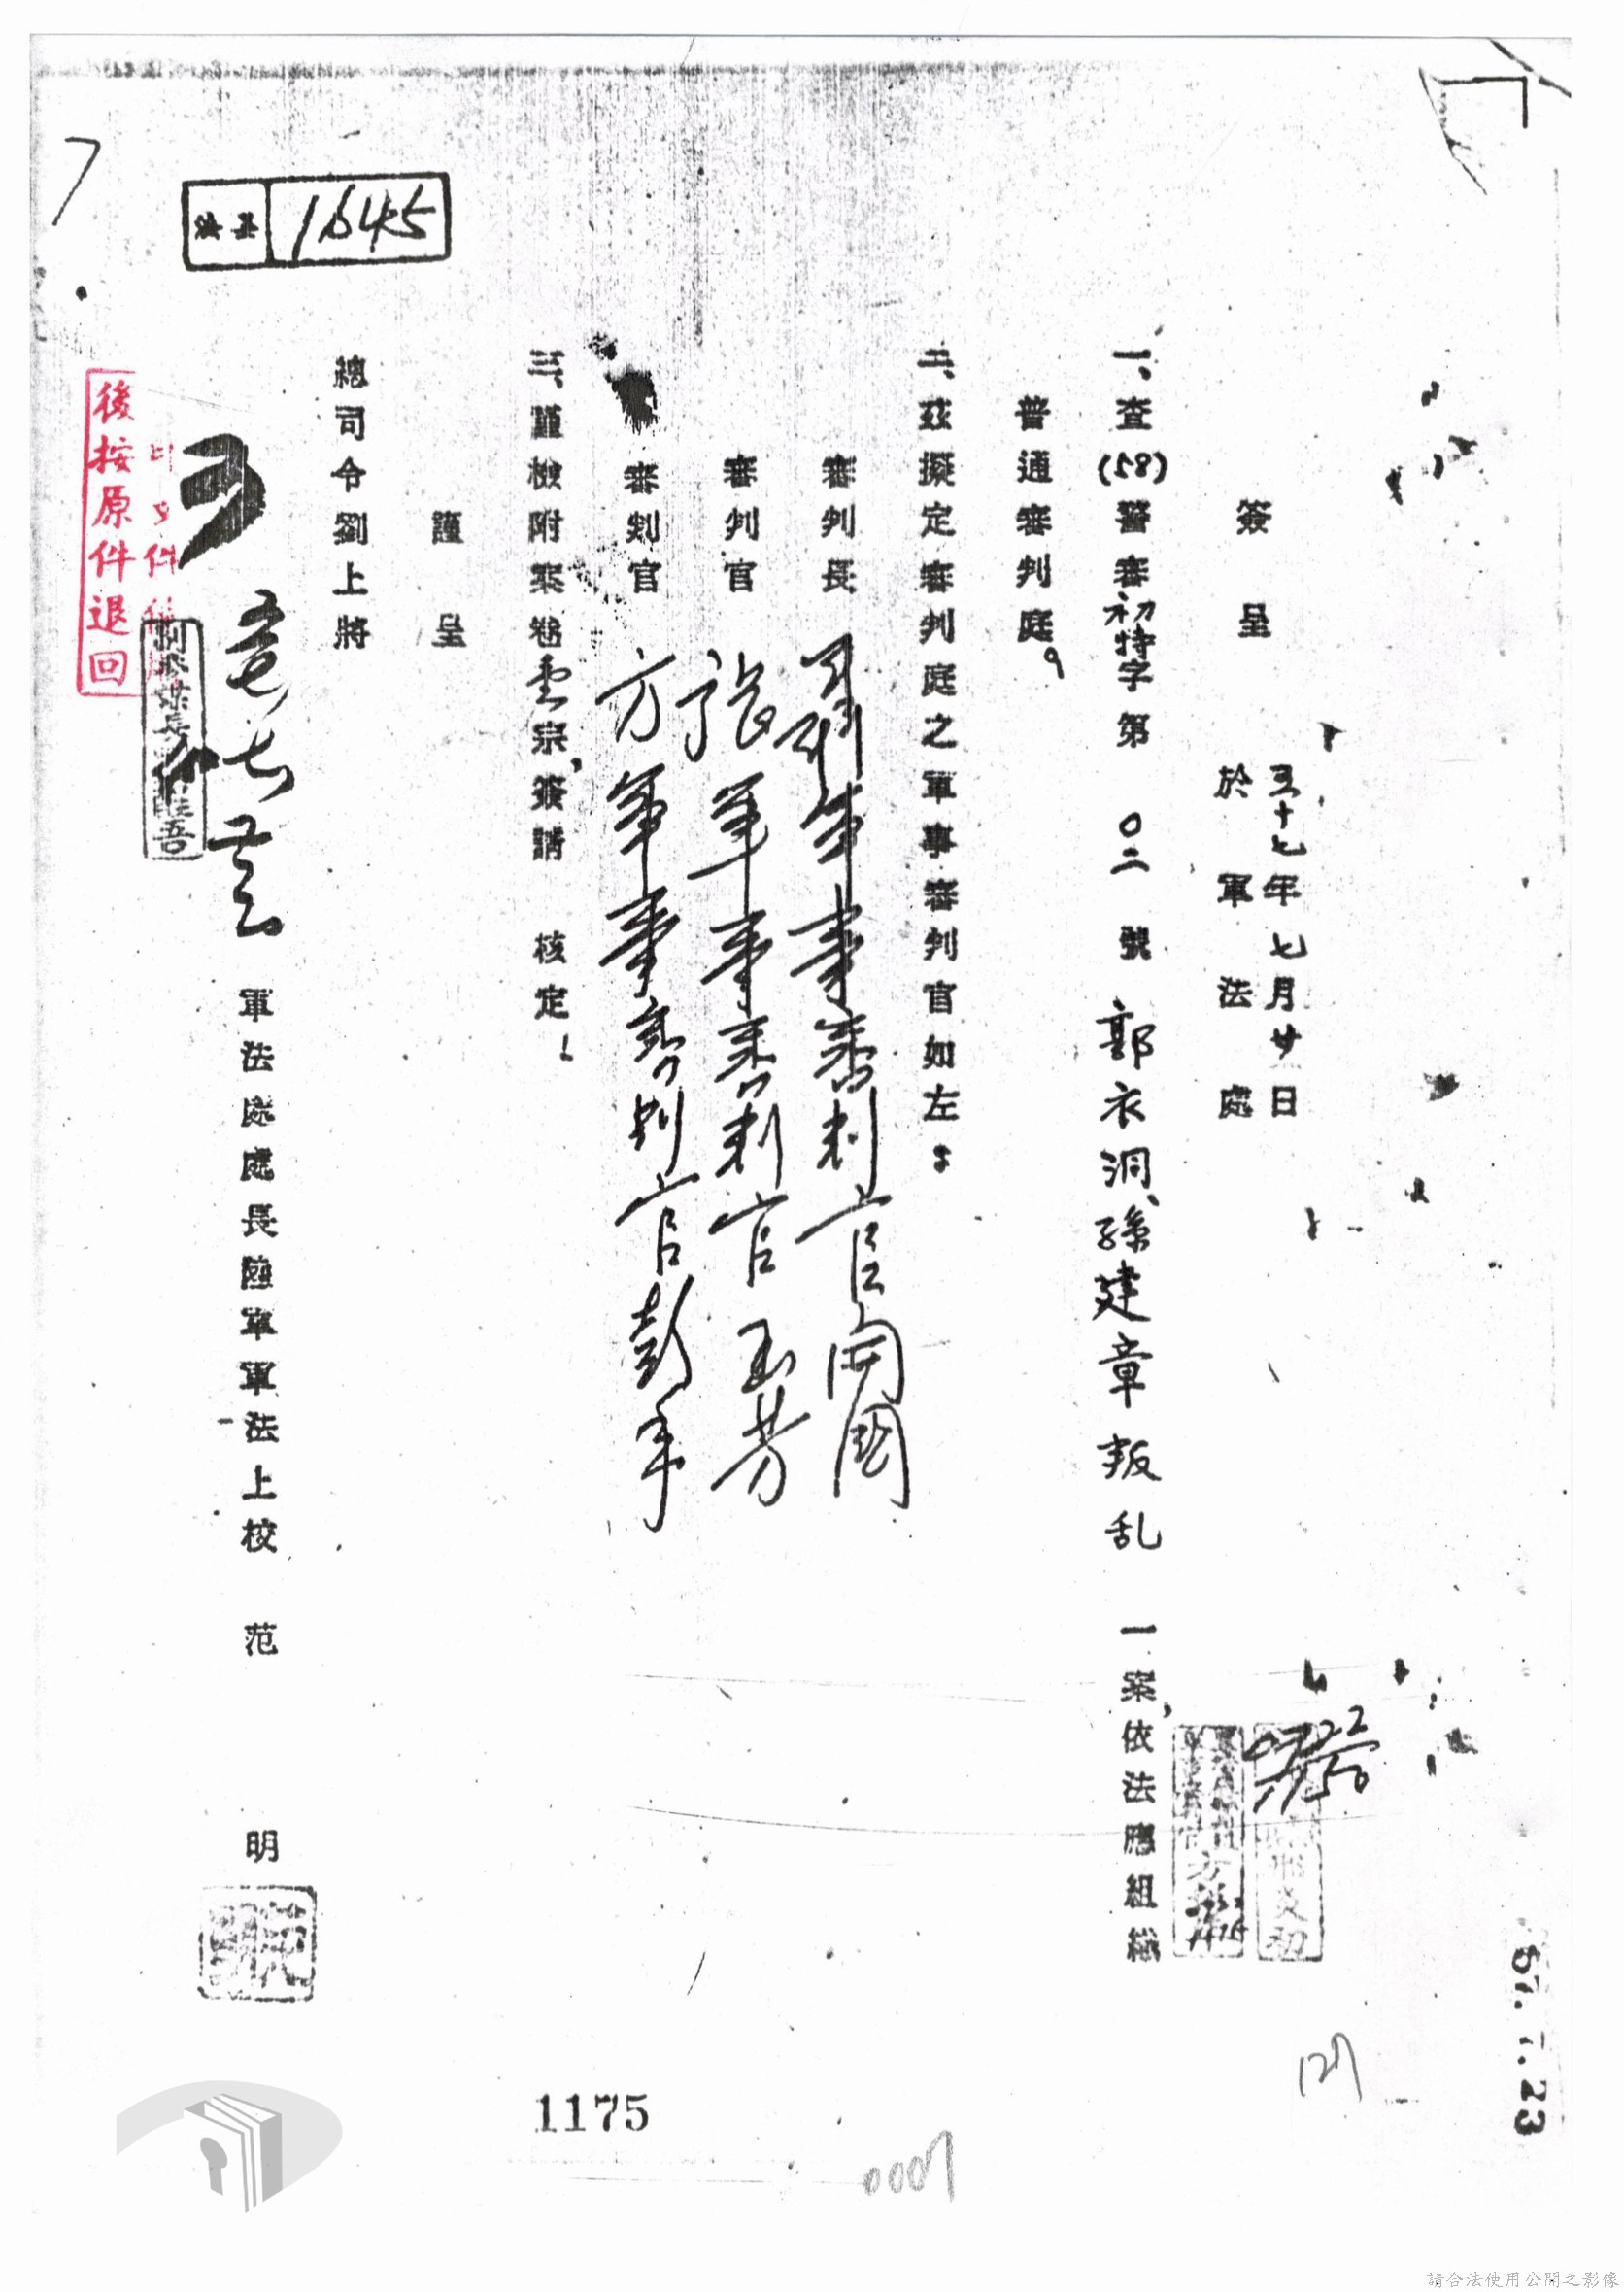 簽呈
五十七年七月廿日
於軍法處
一、查(58)警審初特字第〇二號郭衣洞、孫建章叛乱一案,依法應組織
普通審判庭。
二、茲擬定審判庭之軍事審判官如左:
審判長 軍事審判官開國
審判官 張軍事審判官玉芳
審判官 方軍事審判官彭年
三、謹檢附案卷壹宗,簽請 核定!
謹呈
總司令劉上將
軍法處處長陸軍軍法上校 范明
後按原件退回
1645
57.7.23
1175
0007
請合法使用公開之影像